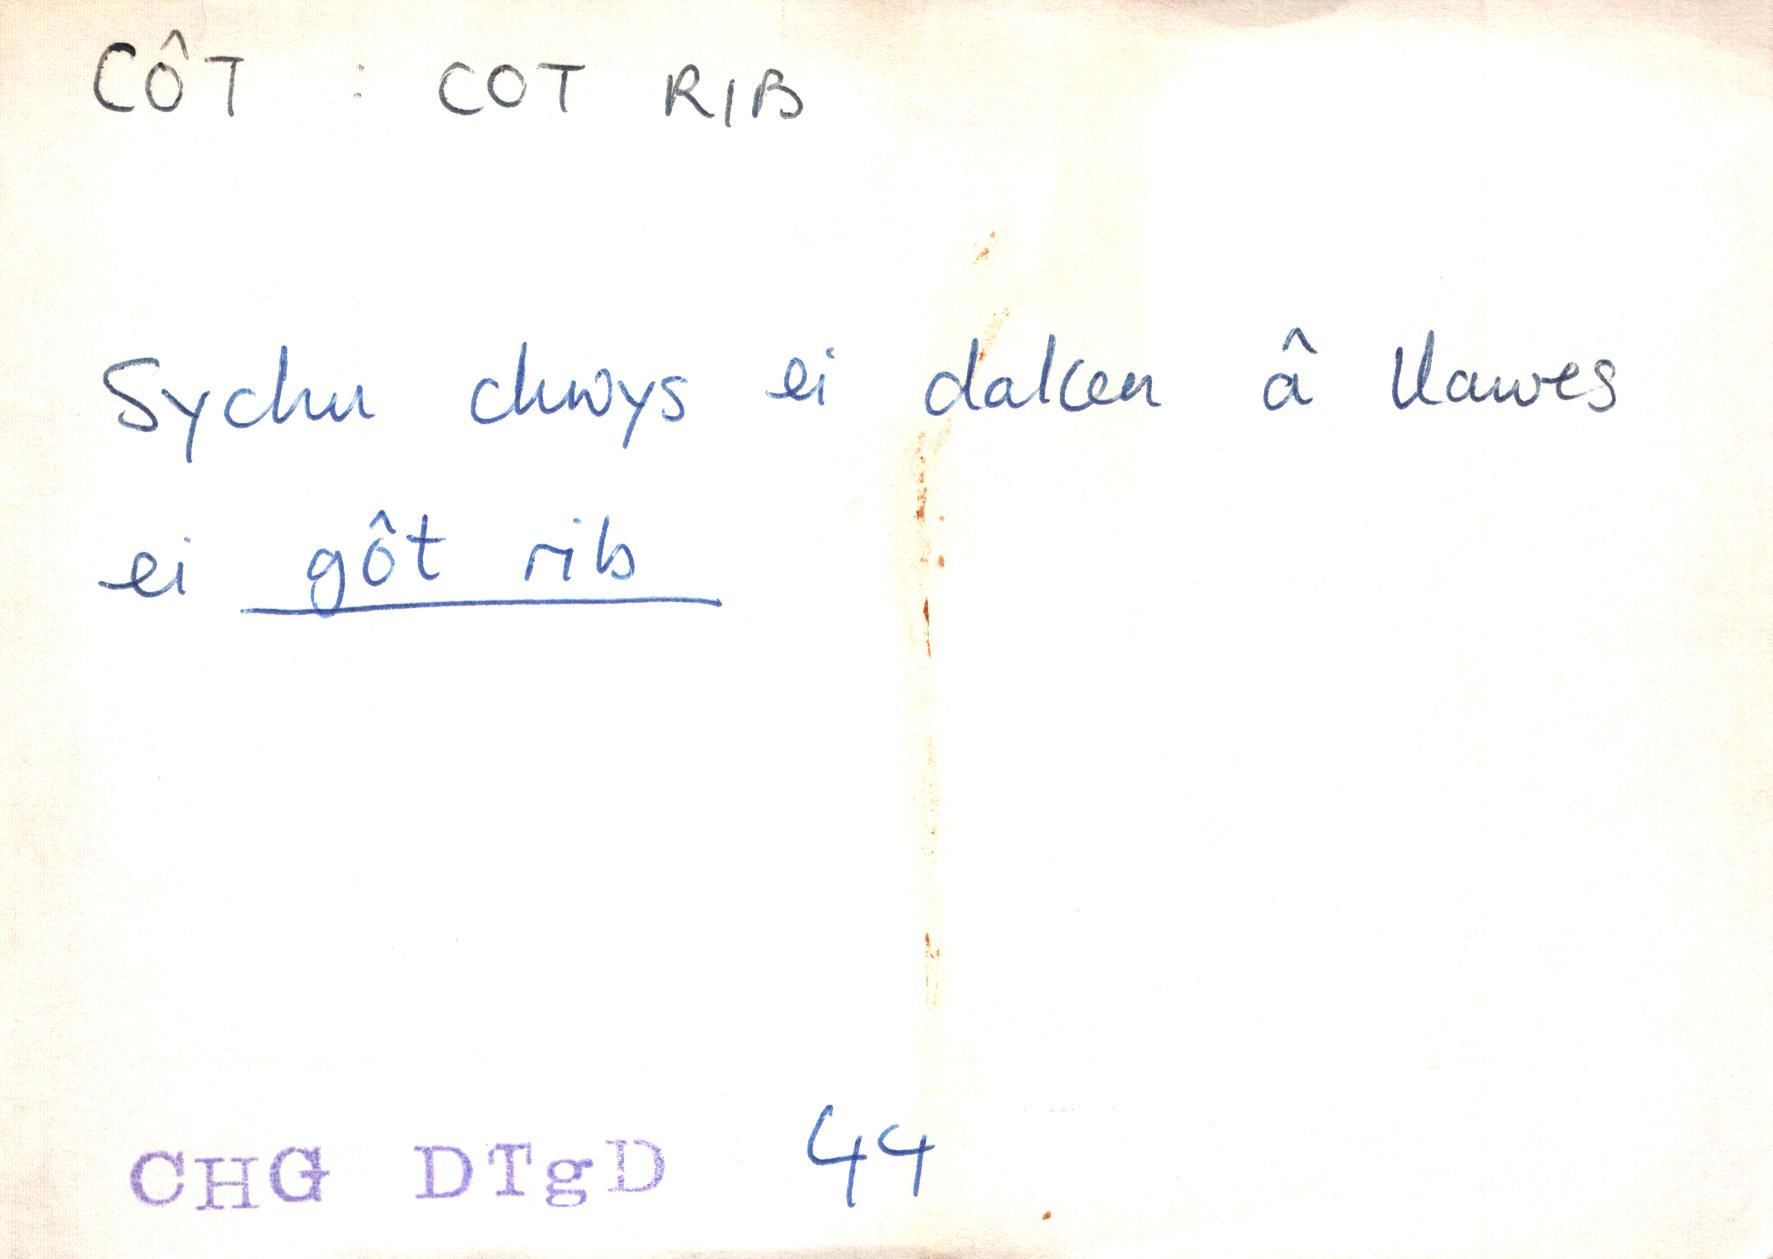 CÔT : COT RIB
Sychu chwys ei dalcen â llawes
ei gôt rib
CHG DTgD 44